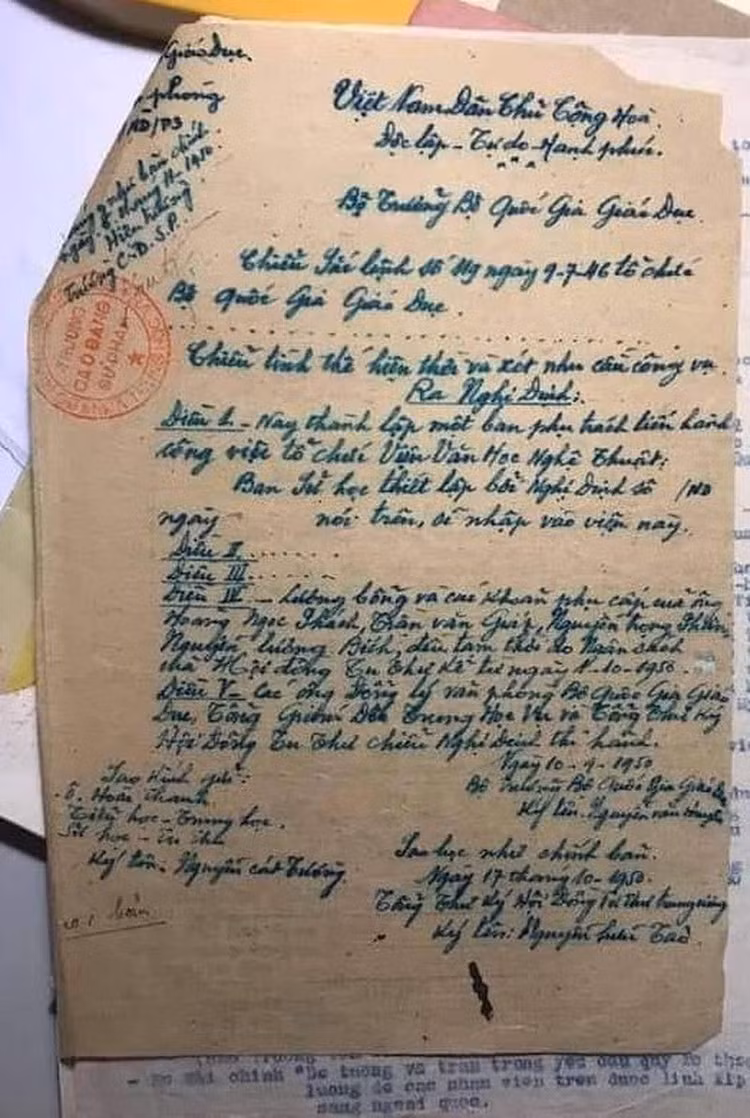 Giáo Dục.
phòng
/NĐ/P3
Việt Nam Dân Chủ Cộng Hoà
Độc lập - Tự do - Hạnh phúc.
Bộ Trưởng Bộ Quốc Gia Giáo Dục.
như bản chính
ngày tháng 11-1950
Hiệu trưởng
Trường C.D.S.P.
Chiểu Sắc lệnh số 119 ngày 9-7-46 tổ chức
Bộ Quốc Gia Giáo Dục.
TRƯỜNG
CAO ĐẲNG
SƯ PHẠM
Chiểu tình thế hiện thời và xét nhu cầu công vụ
Ra Nghị Định:
Điều I. - Nay thành lập một ban phụ trách tiến hành
công việc tổ chức Viện Văn Học Nghệ Thuật;
Ban Sử học thiết lập bởi Nghị Định số /NĐ
ngày nói trên, sẽ nhập vào viện này.
Điều II.......
Điều III.......
Điều IV - Lương bổng và các khoản phụ cấp của ông
Hoàng Ngọc Phách, Trần văn Giáp, Nguyễn trọng Phấn,
Nguyễn lương Bích, đều tạm thời do Ngân sách
của Hội đồng Tu Thư kể từ ngày 1-10-1950.
Điều V - Các ông Đổng lý văn phòng Bộ Quốc Gia Giáo
Dục, Tổng Giám Đốc Trung Học Vụ và Tổng Thư Ký
Hội Đồng Tu Thư chiểu Nghị Định thi hành.
Ngày 10-9-1950
Bộ Trưởng Bộ Quốc Gia Giáo Dục
Ký tên. Nguyễn văn Huyên
Sao kính gửi:
Ô. Hoài Thanh
Tiểu học - Trung học.
Sử học - Tu thư
Ký tên. Nguyễn Tường
Sao lục như chính bản.
Ngày 17 tháng 10-1950.
Tổng Thư Ký Hội Đồng Tu thư trung ương
Ký tên: Nguyễn hữu Tảo
bản
lương do các nhân viên trên được lĩnh kịp
sang ngoại quốc.